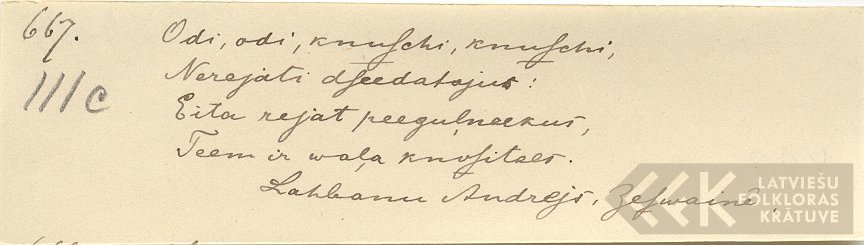 667.
IIIc
Odi, odi, knuſchi, knuſchi,
Nerejati dſeedatajus:
Eita rejat peeguļneekus,
Teem ir waļa knoſitees.
Lahbanu Andrejs, Zeſwainē.
LATVIEŠU
FOLKLORAS
KRĀTUVE